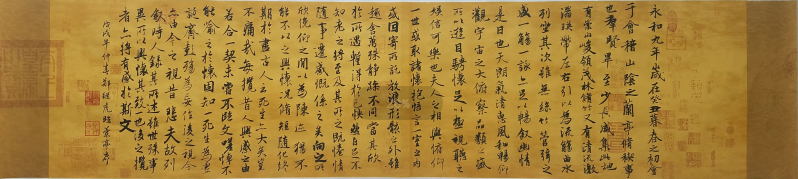 永和九年歲在癸丑暮春之初會
于會稽山陰之蘭亭脩稧事
也羣賢畢至少長咸集此地
有崇山峻領茂林脩竹又有清流激
湍暎帶左右引以為流觴曲水
列坐其次雖無絲竹管弦之
盛一觴一詠亦足以暢叙幽情
是日也天朗氣清惠風和暢仰
觀宇宙之大俯察品類之盛
所以遊目騁懷足以極視聽之
娛信可樂也夫人之相與俯仰
一世或取諸懷抱悟言一室之內
或因寄所託放浪形骸之外雖
趣舍萬殊靜躁不同當其欣
於所遇暫得於己快然自足不
知老之將至及其所之既惓情
隨事遷感慨係之矣向之所
欣俛仰之閒以為陳迹猶不
能不以之興懷況脩短隨化終
期於盡古人云死生亦大矣豈
不痛哉每攬昔人興感之由
若合一契未嘗不臨文嗟悼不
能喻之於懷固知一死生為虛
誕齊彭殤為妄作後之視今
亦由今之視昔悲夫故列
叙時人錄其所述雖世殊事
異所以興懷其致一也後之攬
者亦將有感於斯文
戊戌年仲春